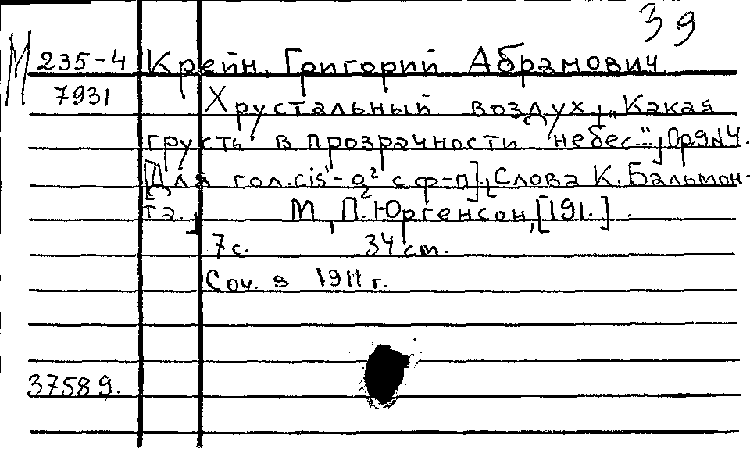 39
М 235-4 Крейн, Григорий Абрамович
7931 Хрустальный воздух. „Какая
грусть в прозрачности небес". Ор9№4.
[Для гол. cis¹-g² с ф-п]. Слова К. Бальмон-
та. М., П. Юргенсон, [191.]
7 с. 34 см.
Соч. в 1911 г.
37589.